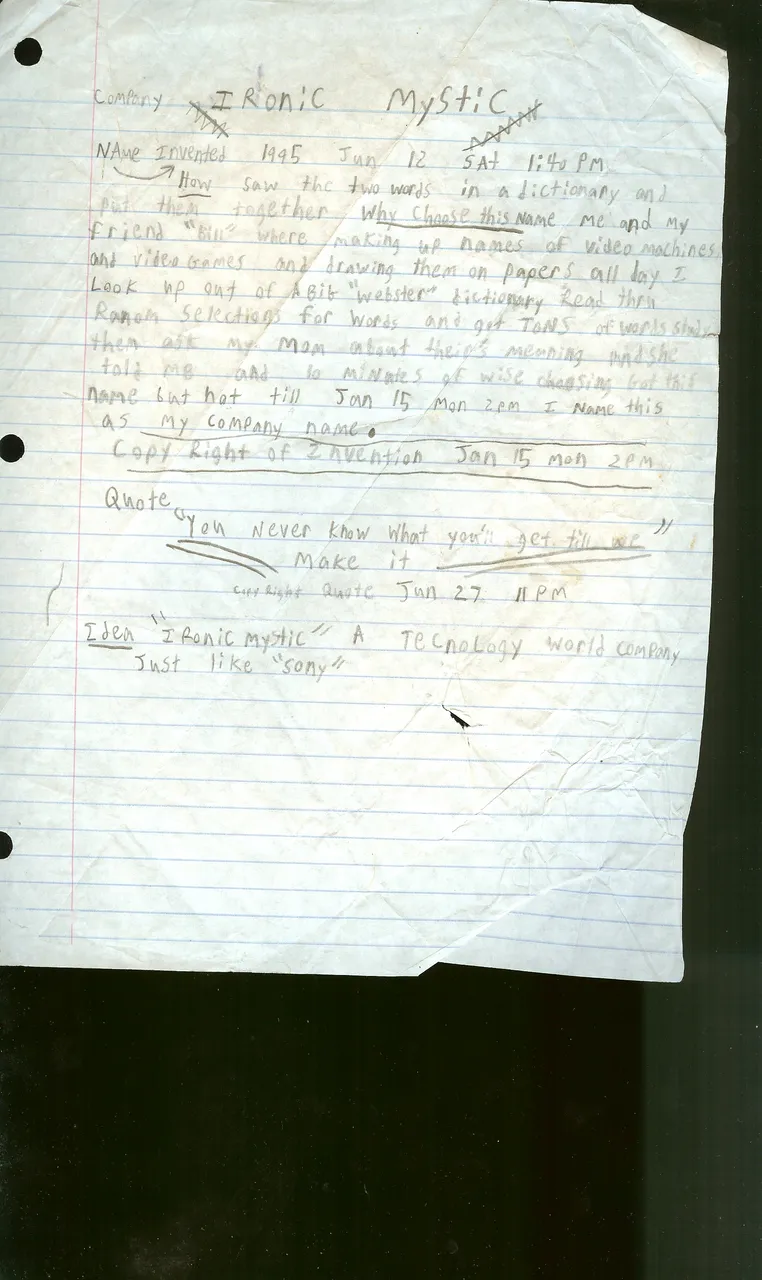 Company IRonic Mystic
NAme Invented 1995 Jun 12 SAt 1:40 PM
How saw the two words in a dictionary and
put them together Why Choose this Name me and my
friend "Bill" where making up names of video machines
and video Games and drawing them on papers all day I
Look up out of A Bit "webster" dictionary Read thru
Ranom Selections for words and got TONS of words
them ask my mom about theip's meaning And she
told me and 10 minates of wise choosing Got this
name but not till Jan 15 Mon 2pm I Name this
as my company name.
Copy Right of Invention Jan 15 mon 2pm
Quote
"You Never Know What you'll get till we"
Make it
Copy Right Quote Jun 27 11PM
Idea "IRonic mystic" A Tecnology world company
Just like "sony"